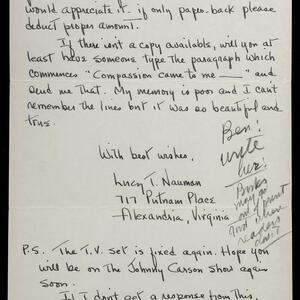 would appreciate it - if only paper-back please
deduct proper amount.
If there isn't a copy available, will you at
least have someone type the paragraph which
commences "Compassion came to me —" and
send me that. My memory is poor and I can't
remember the lines but it was so beautiful and
true.
With best wishes,
Lucy T. Nauman
717 Putnam Place
Alexandria, Virginia
Ben!
write
her!
Books
may
not
print
and
readers
P.S. The T.V. set is fixed again. Hope you
will be on the Johnny Carson show again
soon.
If I don't get a response from this,